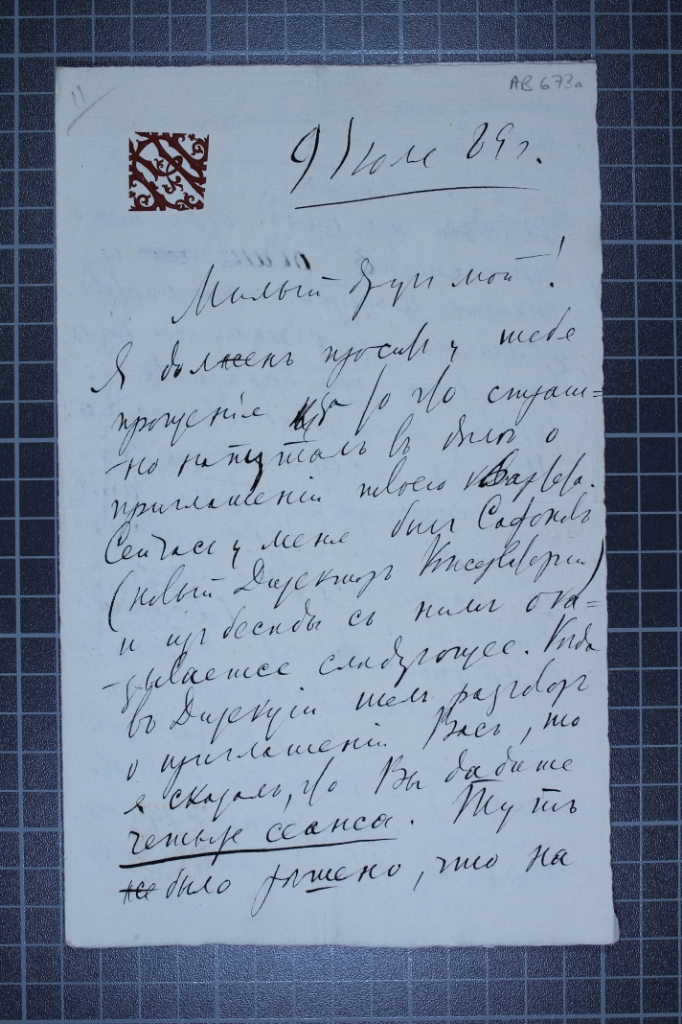 11
AB 673a
9 Iюля 89 г.
Милый другъ мой!
Я долженъ просить у тебя
прощенiе за то что страш=
-но напуталъ въ дѣлѣ о
приглашенiи твоего квартета.
Сейчасъ у меня былъ Сафоновъ
(новый Директоръ Консерваторiи)
и изъ бесѣды съ нимъ ока=
-зывается слѣдующее. Когда
въ Дирекцiи шелъ разговоръ
о приглашенiи Васъ, то
я сказалъ, что Вы дадите
четыре сеанса. Тутъ
же было рѣшено, что на